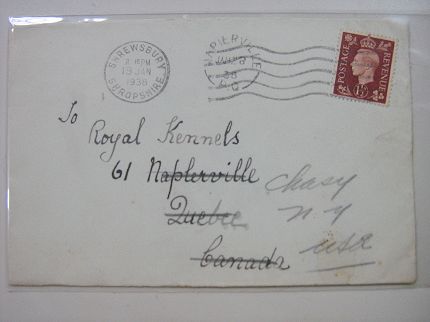 SHREWSBURY
2 15 PM
19 JAN
1938
SHROPSHIRE
NAPIERVILLE
38
P.Q
POSTAGE
REVENUE
1½D
To
Royal Kennels
61 Naplerville
Quebec
Canada
Chasy
N Y
USA